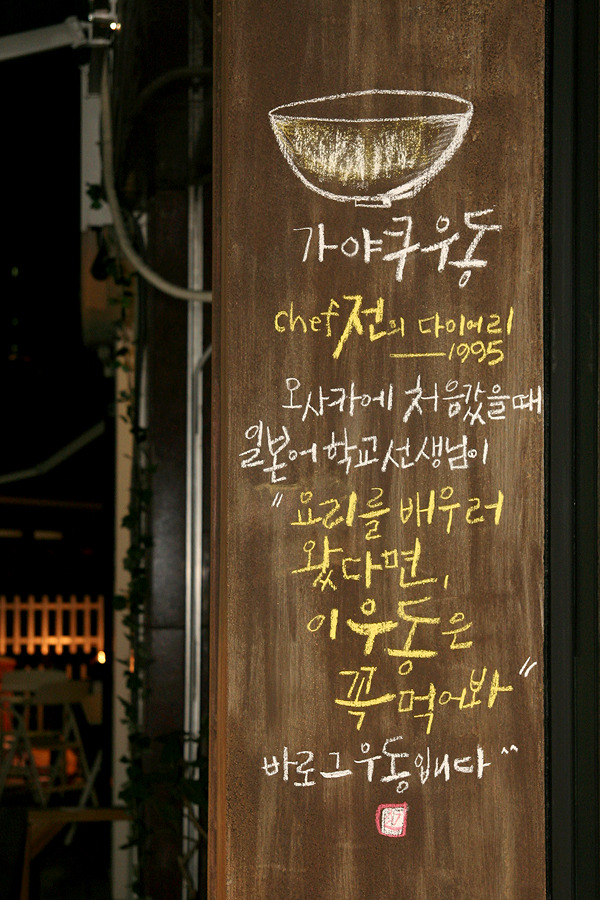 가야쿠우동
chef전의 다이어리
1995
오사카에 처음갔을때
일본어 학교선생님이
"요리를 배우러
왔다면,
이 우동은
꼭 먹어봐"
바로 그 우동입니다^^